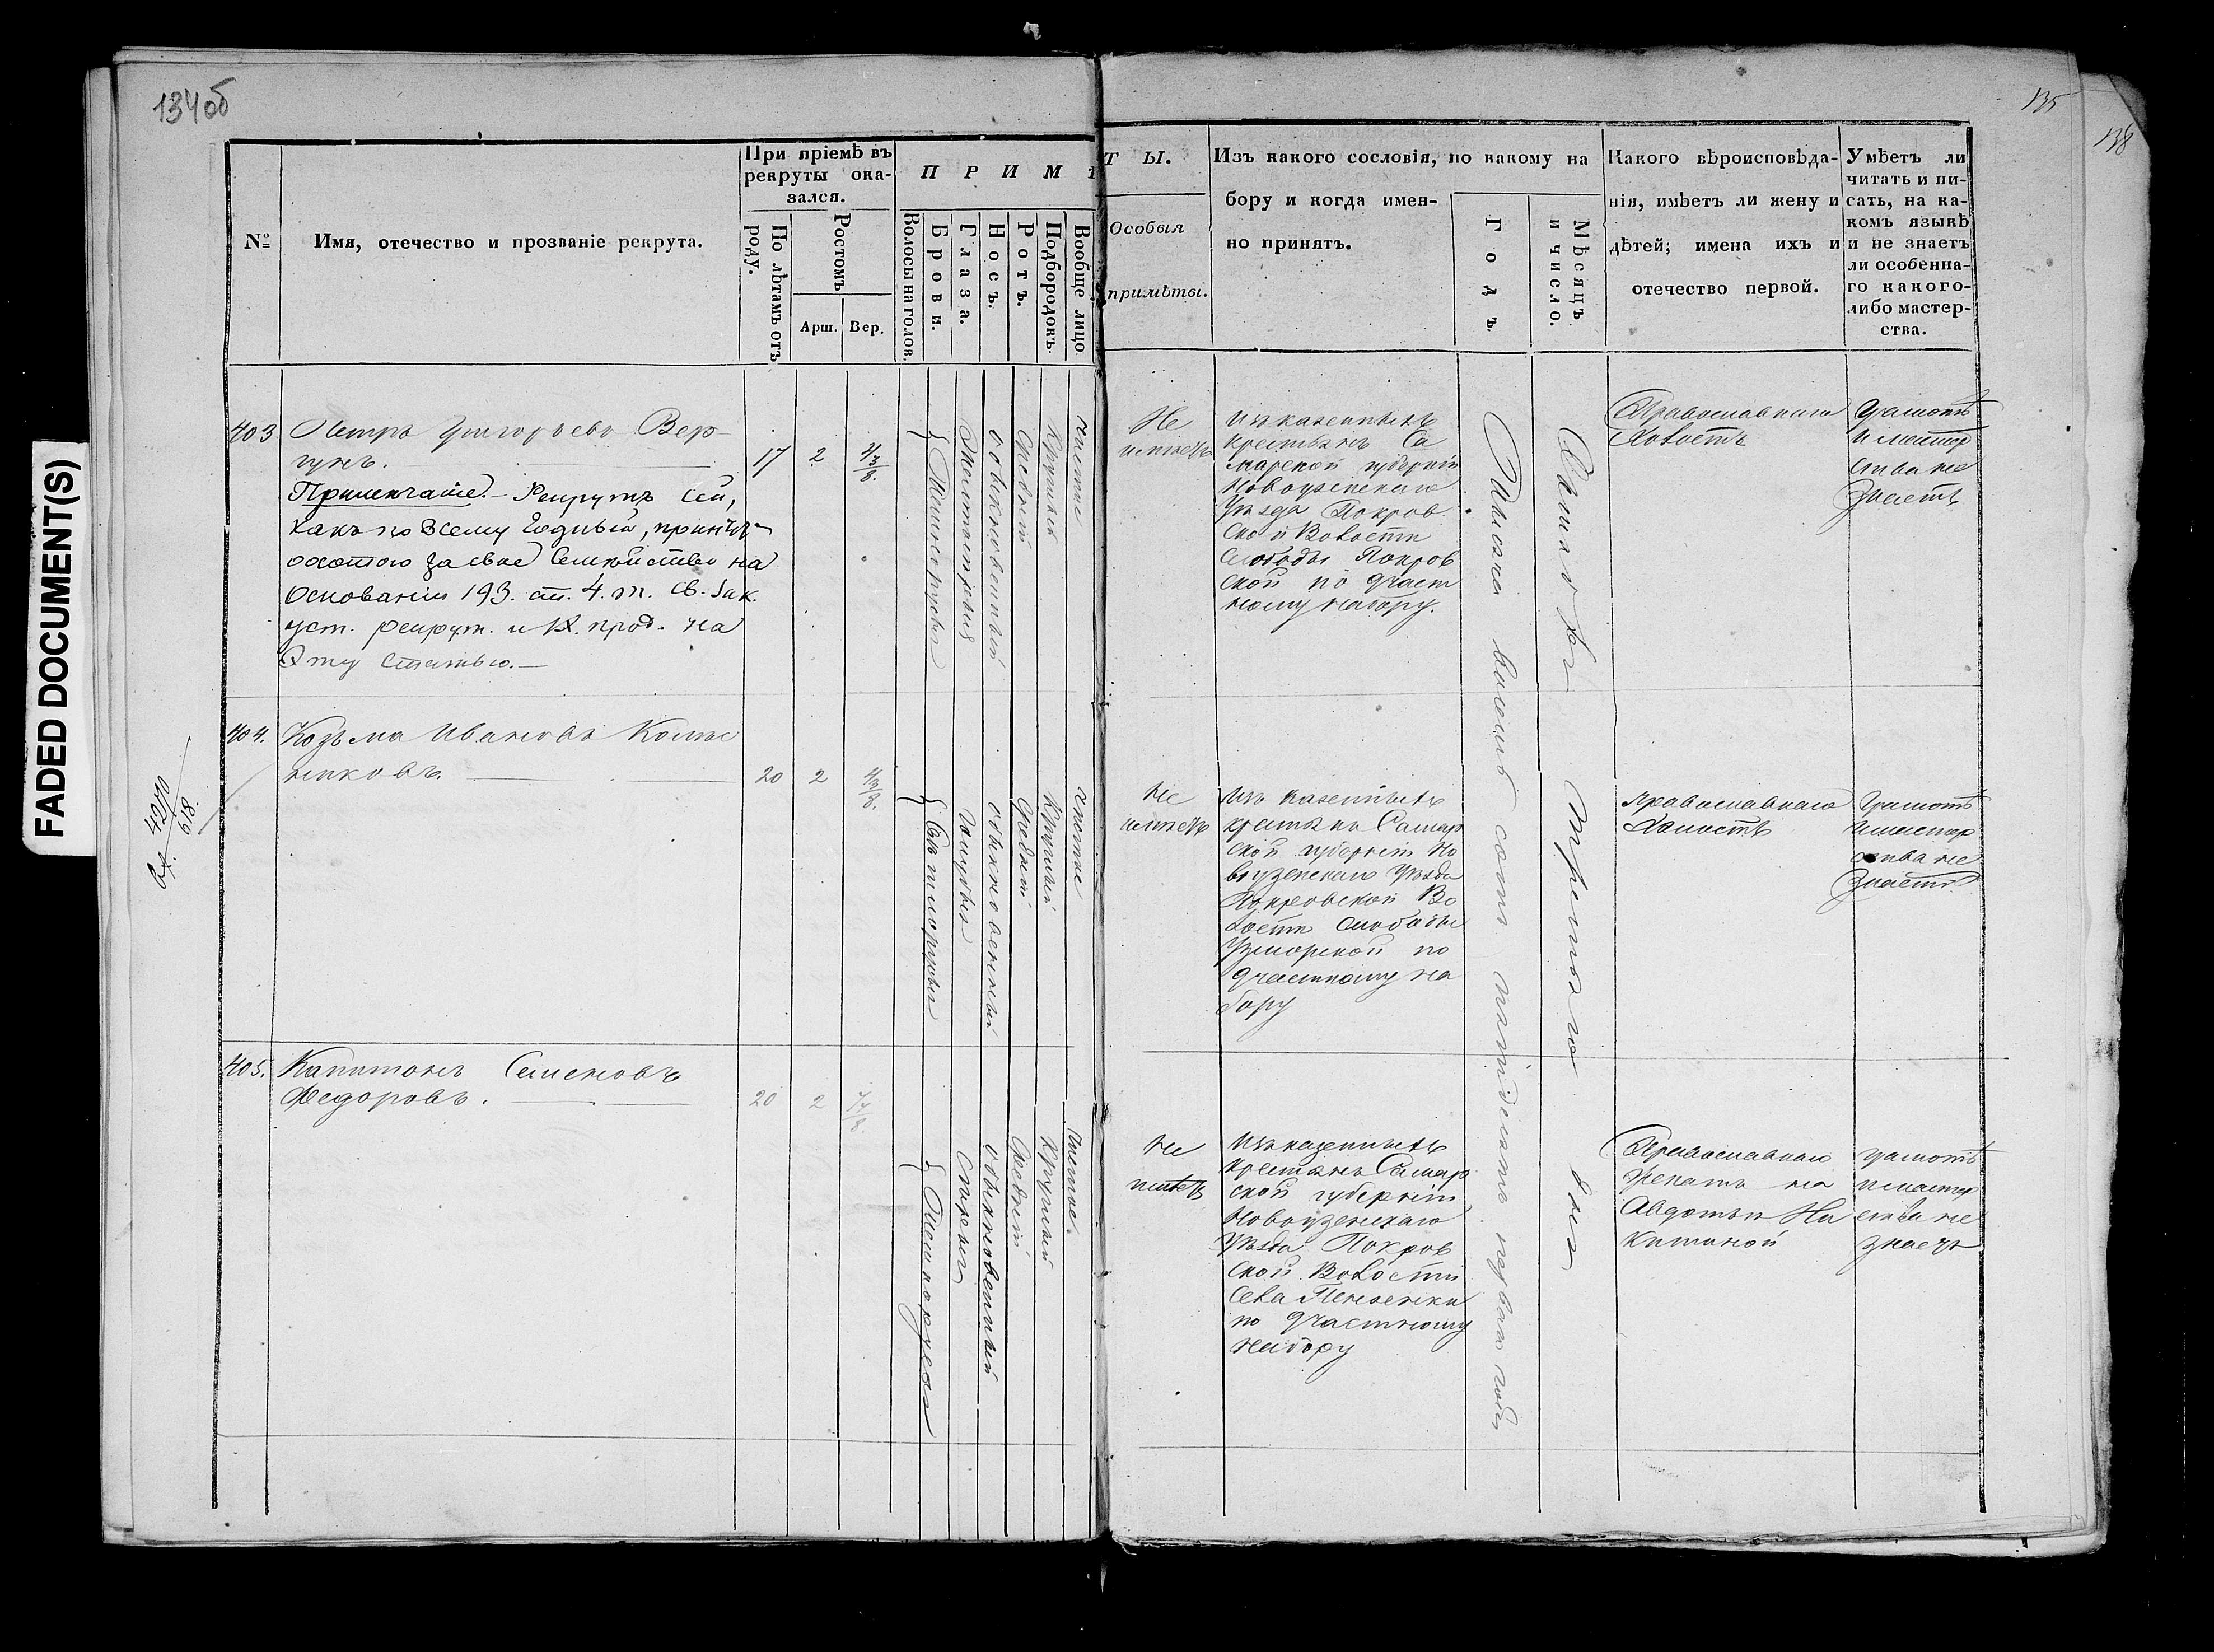 134об
135
138
FADED DOCUMENT(S)
№
Имя, отечество и прозваніе рекрута.
При пріемѣ въ
рекруты ока-
зался.
По лѣтамъ отъ
роду.
Ростомъ
Арш.
Вер.
П Р И М Ѣ
Волосы на голов.
Брови.
Глаза.
Носъ.
Ротъ.
Подбородокъ.
Вообще лицо
Т Ы.
Особыя
примѣты.
Изъ какого сословія, по какому на
бору и когда имен-
но принятъ.
Годъ.
Мѣсяцъ
и число.
Какого вѣроисповѣда-
нія, имѣетъ ли жену и
дѣтей; имена ихъ и
отечество первой.
Умѣетъ ли
читать и пи-
сать, на ка-
комъ языкѣ
и не знаетъ
ли особенна-
го какого-
либо мастер-
ства.
403
Петръ Григорьевъ Вер
гунъ.
17
2
4/3/8.
Примечаніе. – Рекрутъ сей,
какъ по всему годный, принятъ
охотою за свое Семейство на
Основаніи 193. ст. 4. т. Св. Зак.
уст. рекрут. и IX. прод. на
Эту Статью. —
Темнорусыя
обыкновенный
Средній
Круглый
чистое
Не
имѣетъ
Изъ казенныхъ
крестьянъ Са
марской губерніи
Новоузенскаго
Уѣзда Покров
ской Волости
Слободы Покров
ской по Участ
ковому набору.
Тысяча восемьсотъ пятьдесятъ первый годъ
третьяго дня
Православнаго
Холостъ
Грамотѣ
и мастер
ства не
знаетъ
404.
Козьма Ивановъ Колес
никовъ.
20
2
4/3/8.
вх. 4270
618.
Свѣтлорусыя
голубые
обыкновенный
Средній
Круглый
чистое
Не
имѣетъ
Изъ казенныхъ
крестьянъ Самар
ской губерніи Но
воузенскаго Уѣзда
Покровской Во
лости Слободы
Узморской по
Участковому на
бору
Православнаго
Холостъ
Грамотѣ
и мастер
ства не
знаетъ
405.
Капитонъ Семеновъ
Федоровъ.
20
2
Темнорусыя
Сѣрые
обыкновенный
Средній
Круглый
Чистое.
Не
имѣетъ
Изъ казенныхъ
крестьянъ Самар
ской губерніи
Новоузенскаго
Уѣзда Покров
ской Волости
Села Пензенки
по Участковому
набору
Православнаго
Женатъ на
Авдотьи Ни
китиной
грамотѣ
и мастер
ства не
знаетъ